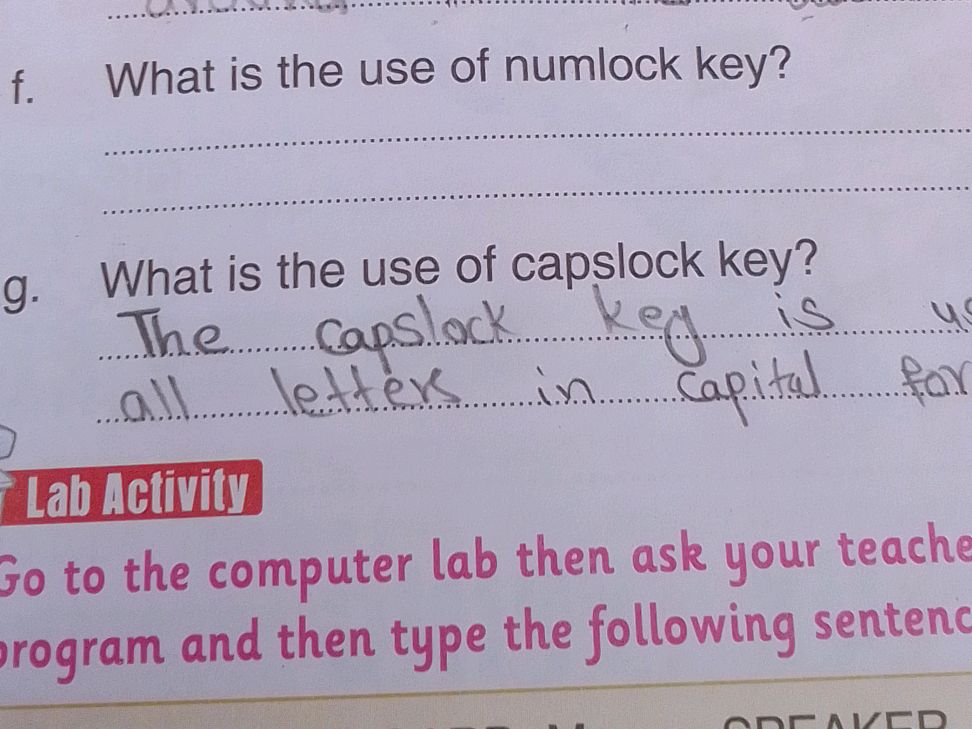 f. What is the use of numlock key?
g. What is the use of capslock key?
The capslock key is us
all letters in capital for
Lab Activity
Go to the computer lab then ask your teache
program and then type the following sentenc
SPEAKER